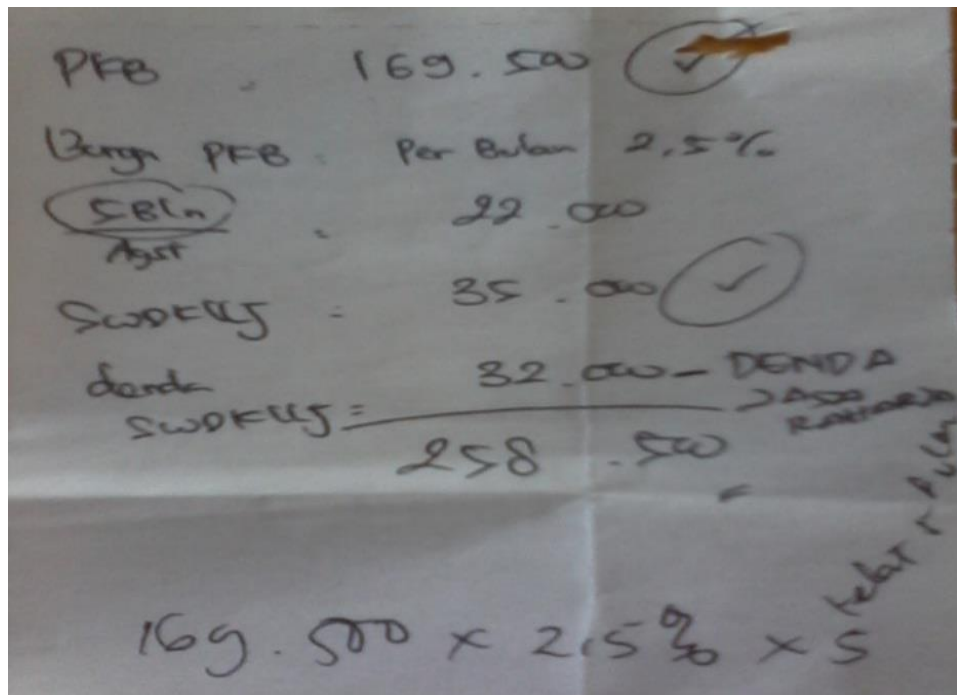 PKB : 169.500
Bunga PKB : Per Bulan 2,5%
5 Bln : 22.000
Agst
SWDKLLJ = 35.000
denda 32.000 - DENDA
SWDKLLJ = JASA
RAHARJA
258.500
telat 5 Bulan
169.500 x 2,5% x 5